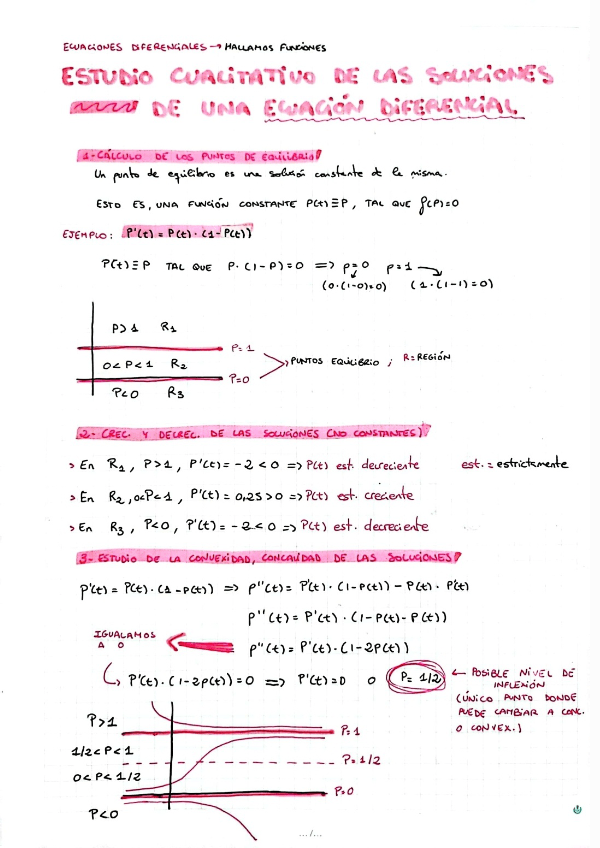 ECUACIONES DIFERENCIALES → HALLAMOS FUNCIONES
ESTUDIO CUALITATIVO DE LAS SOLUCIONES
DE UNA ECUACIÓN DIFERENCIAL
1-CÁLCULO DE LOS PUNTOS DE EQUILIBRIO
Un punto de equilibrio es una solución constante de la misma.
ESTO ES, UNA FUNCIÓN CONSTANTE P(t)≡P, TAL QUE f(P)=0
EJEMPLO: P'(t) = P(t)·(1-P(t))
P(t)≡P TAL QUE P·(1-P)=0 => P=0 P=1
(0·(1-0)=0) (1·(1-1)=0)
P>1 R1
P=1
0<P<1 R2
PUNTOS EQUILIBRIO ; R=REGIÓN
P=0
P<0 R3
2- CREC. Y DECREC. DE LAS SOLUCIONES (NO CONSTANTES)
> En R1, P>1, P'(t)=-2<0 => P(t) est. decreciente est. = estrictamente
> En R2, 0<P<1, P'(t)=0,25>0 => P(t) est. creciente
> En R3, P<0, P'(t)=-2<0 => P(t) est. decreciente
3- ESTUDIO DE LA CONVEXIDAD, CONCAVIDAD DE LAS SOLUCIONES
P'(t)=P(t)·(1-P(t)) => P''(t)=P'(t)·(1-P(t))-P(t)·P'(t)
P''(t)=P'(t)·(1-P(t)-P(t))
IGUALAMOS
A 0
P''(t)=P'(t)·(1-2P(t))
P'(t)·(1-2P(t))=0 => P'(t)=0 o P=1/2
← POSIBLE NIVEL DE
INFLEXIÓN
(ÚNICO PUNTO DONDE
PUEDE CAMBIAR A CONC.
O CONVEX.)
P>1
P=1
1/2<P<1
P=1/2
0<P<1/2
P=0
P<0
.../...